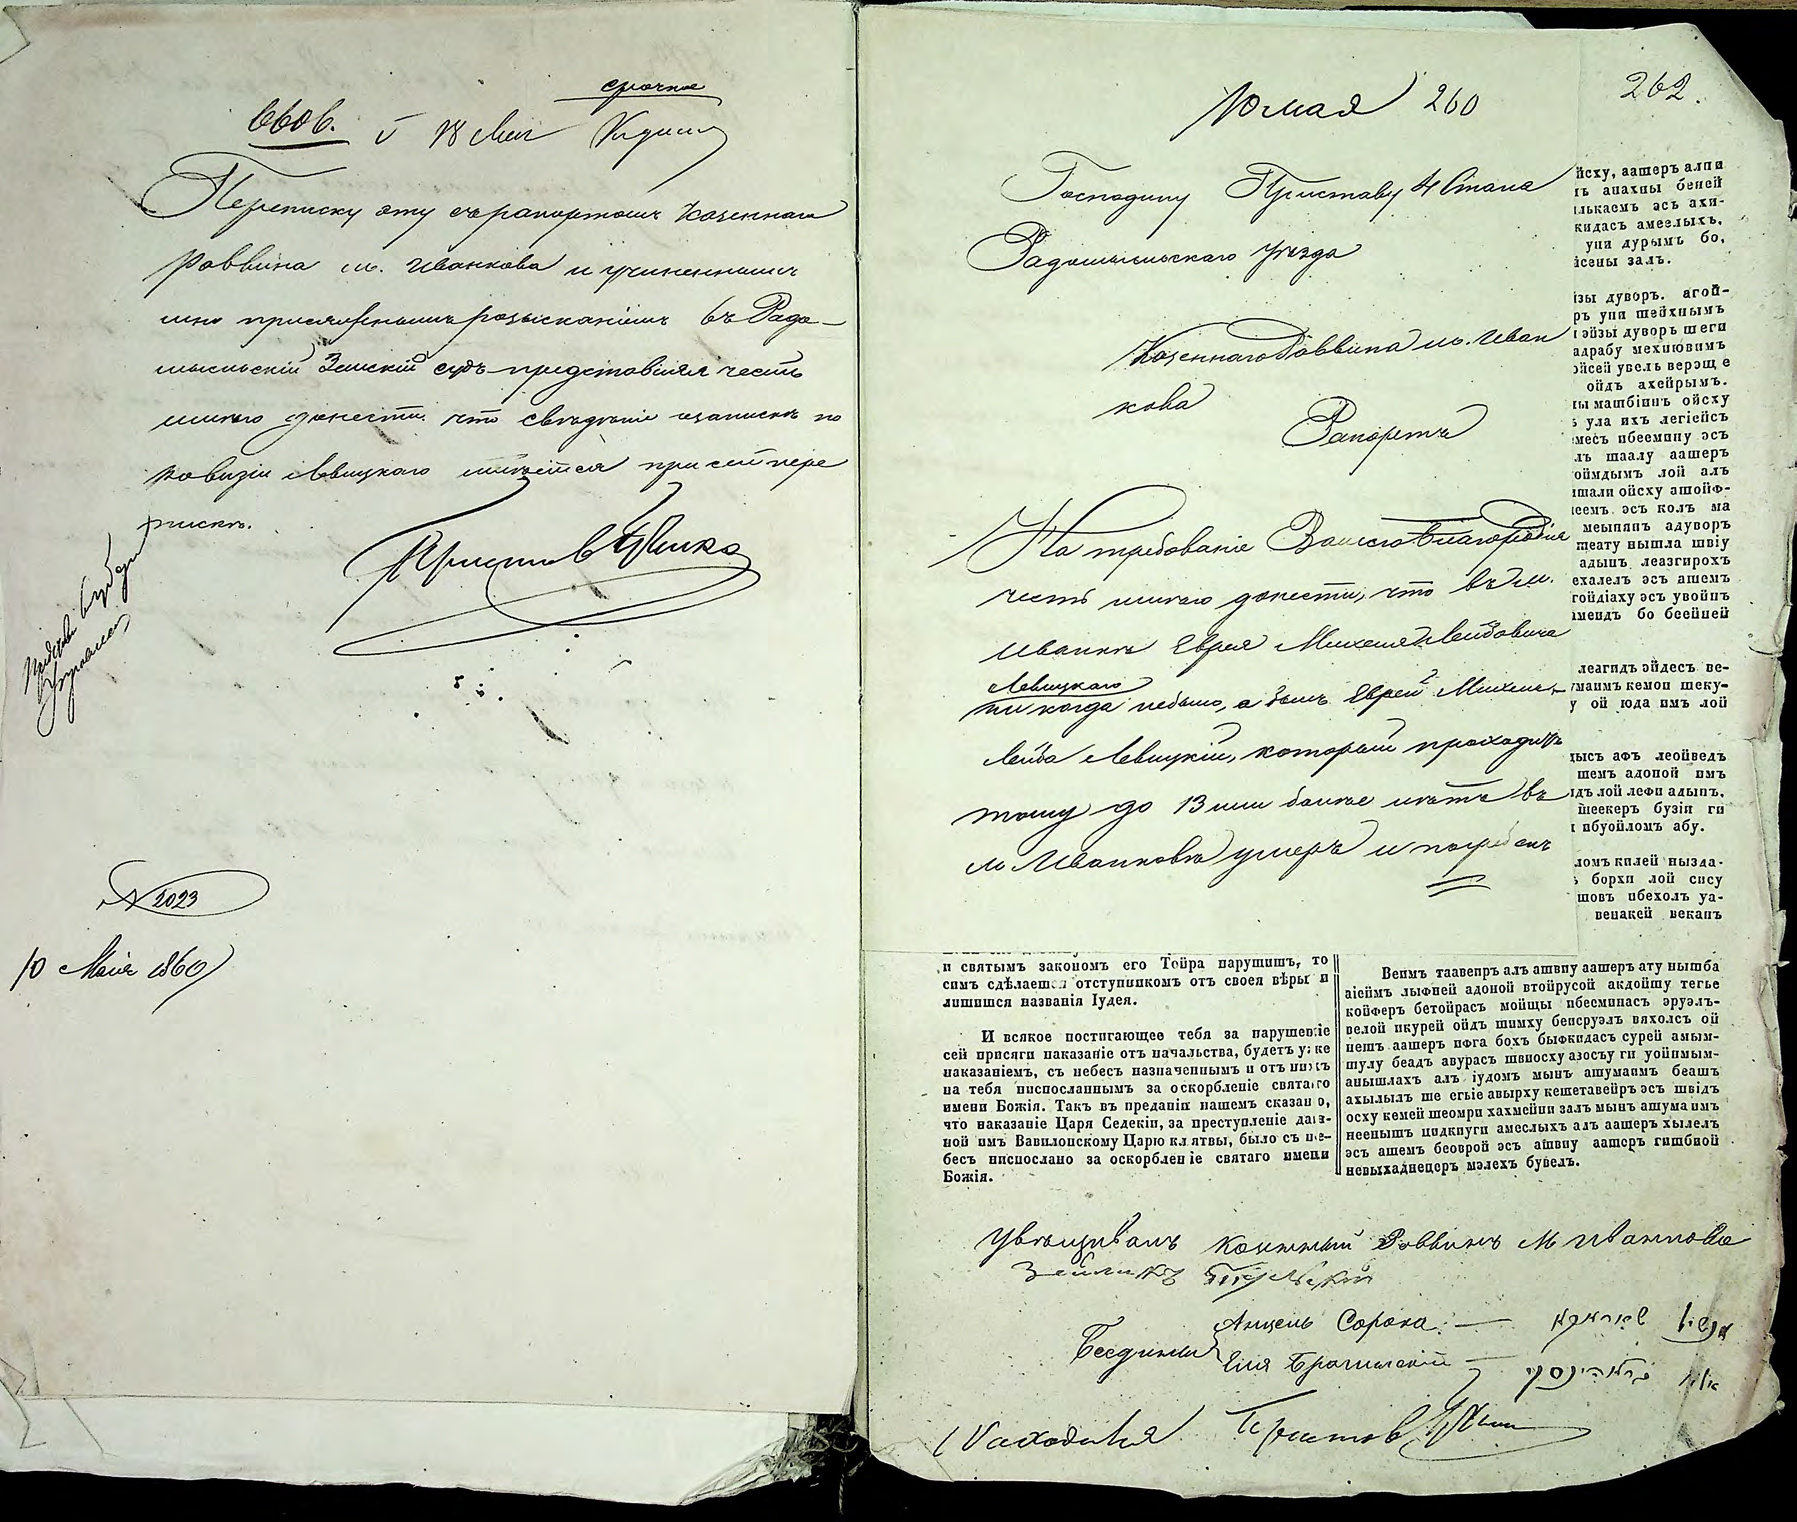 срочное
6606. 18 Мая
Переписку эту съ рапортомъ Козеннаго
Роввина м. Иванкова и учиненнымъ
мною присяжнымъ розысканіемъ въ Радо-
мысльскій Земскій судъ представляя честь
имѣю донести что свѣдѣніе о запискѣ по
ревизіи Левицкаго имѣется при сей пере
пискѣ.
Приставъ
№ 2023
10 Мая 1860
10 мая 260
262.
Господину Приставу 4 Стана
Радомысльскаго уѣзда
Козеннаго Роввина м. Иван
кова
Рапортъ
На требованіе Вашего Благородія
честь имѣю донести, что въ м.
Иванковѣ Еврея Михеля Лейбовича
Левицкаго
никогда небыло, а былъ Еврей Михель
Лейба Левицкій, который проходитъ
тому до 13 или болѣе лѣтъ въ
м Иванковѣ умеръ и погребенъ
йсху, аашеръ алпи
ъ анахны беней
лькаемъ эсъ ахи-
кидасъ амеглыхъ,
уни дурымъ бо,
ясены залъ.
изы дуворъ. агой-
ръ уни шейхнымъ
эйзы дуворъ шеги
адрабу мехиювимъ
ойсей увель верэщ е
ойдъ ахейрымъ.
ы машбіинъ ойсху
ула ихъ легіейсъ
месъ ибеемину эсъ
лъ шаалу аашеръ
оймдымъ лой алъ
шали ойсху ашойф-
еемъ эсъ колъ ма
меыпяпъ адуворъ
теату нышла швіу
адыпъ леазгирохъ
ехалелъ эсъ ашемъ
гойдіаху эсъ увойнъ
мендъ бо беейней
леагидъ эйдесъ ве-
маимъ кемон шеку-
у ой юда имъ лой
дысъ афъ леойведъ
шемъ адоной имъ
дъ лой лефи адыпъ.
шеекеръ бузіи ги
ибуойломъ абу.
ломъ килей нызда-
борхи лой сису
шовъ ибехолъ уа-
венакей векапъ
и святымъ закономъ его Тойра нарушишъ, то
симъ сдѣлаешся отступникомъ отъ своея вѣры и
лишишся названія Іудея.
И всякое постигающее тебя за нарушеніе
сей присяги наказаніе отъ начальства, будетъ уже
наказаніемъ, съ небесъ назначеннымъ и отъ нихъ
на тебя ниспосланнымъ за оскорбленіе святаго
имени Божія. Такъ въ преданіи нашемъ сказано,
что наказаніе Царя Седекіи, за преступленіе дан-
ной имъ Вавилонскому Царю клятвы, было съ не-
бесъ ниспослано за оскорбленіе святаго имени
Божія.
Веимъ таавепръ алъ ашвпу аашеръ ату нышба
аіеймъ лыфней адоной втойрусой акдойшу тегье
койферъ бетойрасъ мойщы ибееминасъ эруэлъ-
велой икурей ойдъ шимху бенсруэлъ вяхолсъ ой
нешъ аашеръ пфга бохъ быфкидасъ сурей амым-
шулу беадъ авурасъ швиосху азосъу ги уойнмым-
анышлахъ алъ іудомъ мынъ ашумаимъ беашъ
ахылылъ ше егье авырху кешетавейръ эсъ швідъ
осху кемей шеомри хахмейни залъ мынъ ашумаимъ
неенышъ цидкнуги амеслыхъ алъ аашеръ хылелъ
эсъ ашемъ беоврой эсъ ашвпу аашеръ гишбиой
невыхаднецеръ мэлехъ бувелъ.
Увѣщивалъ Козенный Роввинъ М Иванкова
Беединымъ
Анцель Сорока
Еля
Находился Приставъ